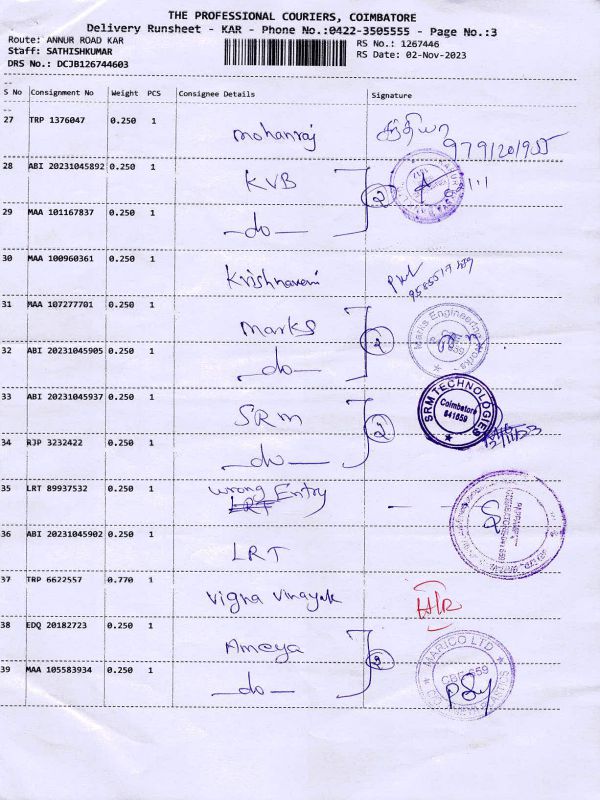 THE PROFESSIONAL COURIERS, COIMBATORE
Delivery Runsheet - KAR - Phone No.:0422-3505555 - Page No.:3
Route: ANNUR ROAD KAR
Staff: SATHISHKUMAR
DRS No.: DCJB126744603
RS No.: 1267446
RS Date: 02-Nov-2023
S No Consignment No Weight PCS Consignee Details Signature
27 TRP 1376047 0.250 1 mohanraj
28 ABI 20231045892 0.250 1 KVB 2
29 MAA 101167837 0.250 1 —do—
30 MAA 100960361 0.250 1 Krishnaveni
31 MAA 107277701 0.250 1 marks 2 Marks Engineering Works
32 ABI 20231045905 0.250 1 —do—
33 ABI 20231045937 0.250 1 SRM 2 SRM TECHNOLOGIES Coimbatore 641659
34 RJP 3232422 0.250 1 —do—
35 LRT 89937532 0.250 1 wrong Entry LRT
36 ABI 20231045902 0.250 1 LRT
37 TRP 6622557 0.770 1 Vigna Vinayak
38 EDQ 20182723 0.250 1 Ameya MARICO LTD
39 MAA 105583934 0.250 1 —do—